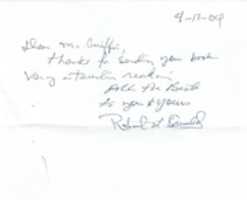 4-17-09
Dear Mr. Griffin,
Thanks for sending your book
Very interesting reading
All the Best
to you & yours
Robert